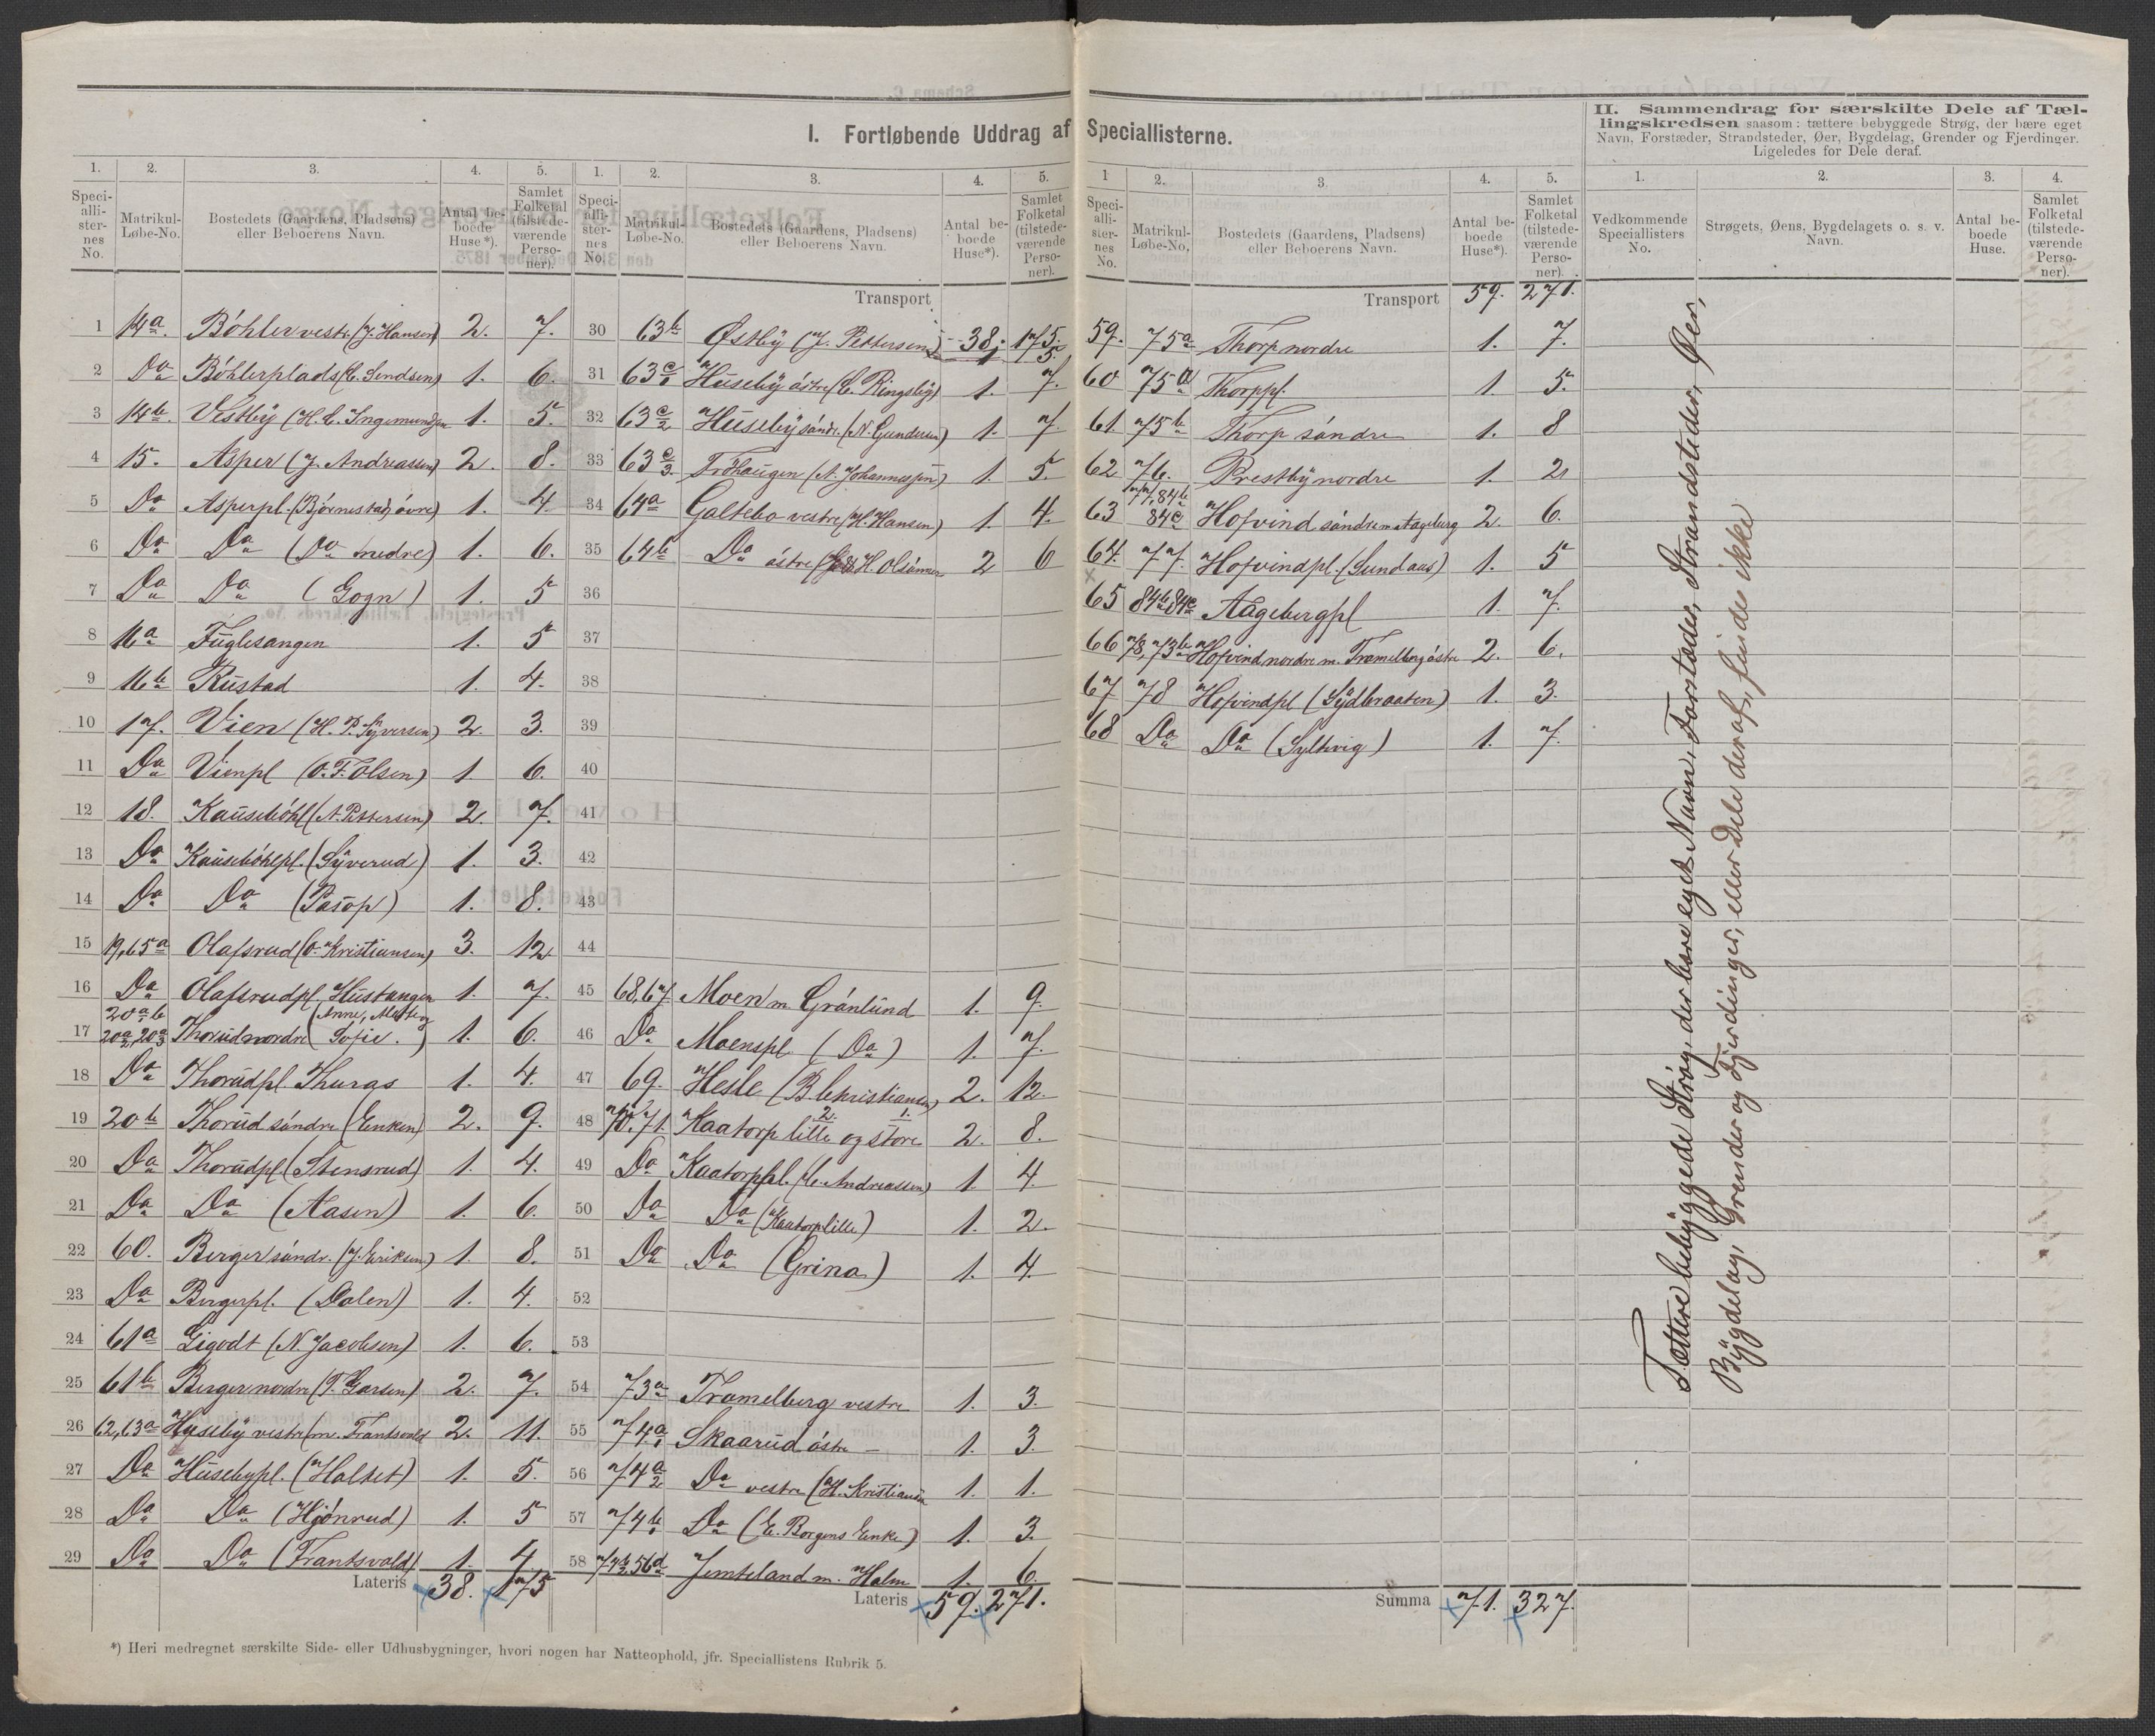 I. Fortløbende Uddrag af Speciallisterne.
1. 2. 3. 4. 5.
Speciallisternes No. Matrikul-Løbe-No. Bostedets (Gaardens, Pladsens) eller Beboerens Navn. Antal beboede Huse*). Samlet Folketal (tilstedeværende Personer).
1 14a. Böhler vestr. (J. Hansen) 2. 7.
2 Do Böhlerplads (E. Sendsen) 1. 6.
3 14b. Vestby (H. E. Ingemundsen 1. 5.
4 15. Asper (J. Andreassen) 2. 8.
5 Do Asperpl. (Björnestad, övre) 1. 4.
6 Do Do (Do nedre) 1. 6.
7 Do Do (Gogn) 1. 5
8 16a Fuglesangen 1. 5
9 16b Rustad 1. 4.
10 17. Vien (H. P. Syversen) 2. 3.
11 Do Vienpl (O. F. Olsen) 1. 6.
12 18. Kauseböhl (A. Pettersen) 2. 7.
13 Do Kauseböhlpl. (Syverud) 1. 3.
14 Do Do (Pasop) 1. 8.
15 19, 65a Olafsrud (O. Kristiansen) 3. 12
16 Do Olafsrudpl. Hustangen 1. 7.
17 20a1b 20a2, 20a3 Thorud nordre (Anne, Mathe og Sofie.) 1. 6.
18 Do Thorudpl. Thuras 1. 4.
19 20b Thorud söndre (Enken) 2. 9.
20 Do Thorudpl. (Stensrud) 1. 4.
21 Do Do (Aasen) 1. 6.
22 60. Berger söndr. (J. Eriksen) 1. 8.
23 Do Bergerpl. (Dalen) 1. 4.
24 61a Ligodt (N. Jacobsen) 1. 6.
25 61b Berger nordre (T. Larsen) 2. 7.
26 62, 63a Huseby vestre m. Frantsvold 2. 11.
27 Do Husebypl. (Holtet) 1. 5.
28 Do Do (Hjönrud) 1. 5
29 Do Do (Frantsvold) 1. 4.
Lateris 38. 175
*) Heri medregnet særskilte Side- eller Udhusbygninger, hvori nogen har Natteophold, jfr. Speciallistens Rubrik 5.
1. 2. 3. 4. 5.
Speciallisternes No. Matrikul-Løbe-No. Bostedets (Gaardens, Pladsens) eller Beboerens Navn. Antal beboede Huse*). Samlet Folketal (tilstedeværende Personer).
Transport 38. 175.
30 63b Østby (J. Pettersen) 1 5.
31 63c1 Huseby östre (C. Ringsby) 1. 7.
32 63c2 Huseby söndr. (N. Gundersen) 1. 7.
33 63c3. Fröhaugen (A. Johannessen) 1. 5.
34 64a Galtebo vestre (H. Hansen) 1. 4.
35 64b Do östre (H. Olsönner 2 6
36
37
38
39
40
41
42
43
44
45 68, 67 Moen m. Grönlund 1. 9.
46 Do Moenspl. (Do) 1. 7.
47 69. Hesle (B. Christiansen) 2. 12.
48 70, 71. Kaatorp lille og store 2. 8.
49 Do Kaatorppl. (C. Andreassen) 1. 4.
50 Do Do (Kaatorplille) 1. 2.
51 Do Do (Grina) 1. 4.
52
53
54 73a Tramelberg vestre 1. 3.
55 74a1 Skaarud östre 1. 3
56 74a2 Do vestre (H. Kristiansen 1. 1.
57 74b1 Do (E. Borgens Enke) 1. 3.
58 74b2 56d Jemteland m. Holm 1. 6.
Lateris 59. 271.
1 2. 3. 4. 5.
Speciallisternes No. Matrikul-Løbe-No. Bostedets (Gaardens, Pladsens) eller Beboerens Navn. Antal beboede Huse*). Samlet Folketal (tilstedeværende Personer).
Transport 59. 271.
59. 75a Thorp nordre 1. 7.
60 75a Thorppl. 1. 5.
61. 75b Thorp söndre 1. 8
62 76. Prestby nordre 1. 2
63 77, 84b 84c Hofvind söndre m Aageberg 2. 6.
64. 77. Hofvindpl. (Sundaas) 1. 5
65 84b 84c Aagebergpl 1. 7.
66 78, 73b Hofvind nordre m. Tramelberg östre 2. 6.
67 78 Hofvindpl (Sydbraaten) 1. 3.
68 Do Do (Syltvig) 1. 7.
Summa 71. 327.
II. Sammendrag for særskilte Dele af Tællingskredsen saasom: tættere bebyggede Strøg, der bære eget Navn, Forstæder, Strandsteder, Øer, Bygdelag, Grender og Fjerdinger. Ligeledes for Dele deraf.
1. 2. 3. 4.
Vedkommende Speciallisters No. Strøgets, Øens, Bygdelagets o. s. v. Navn. Antal beboede Huse. Samlet Folketal (tilstedeværende Personer).
Tættere bebyggede Strög, der bære eget Navn, Forstæder, Strandsteder, Øer,
Bygdelag, Grender og Fjerdinger, eller Dele deraf, findes ikke